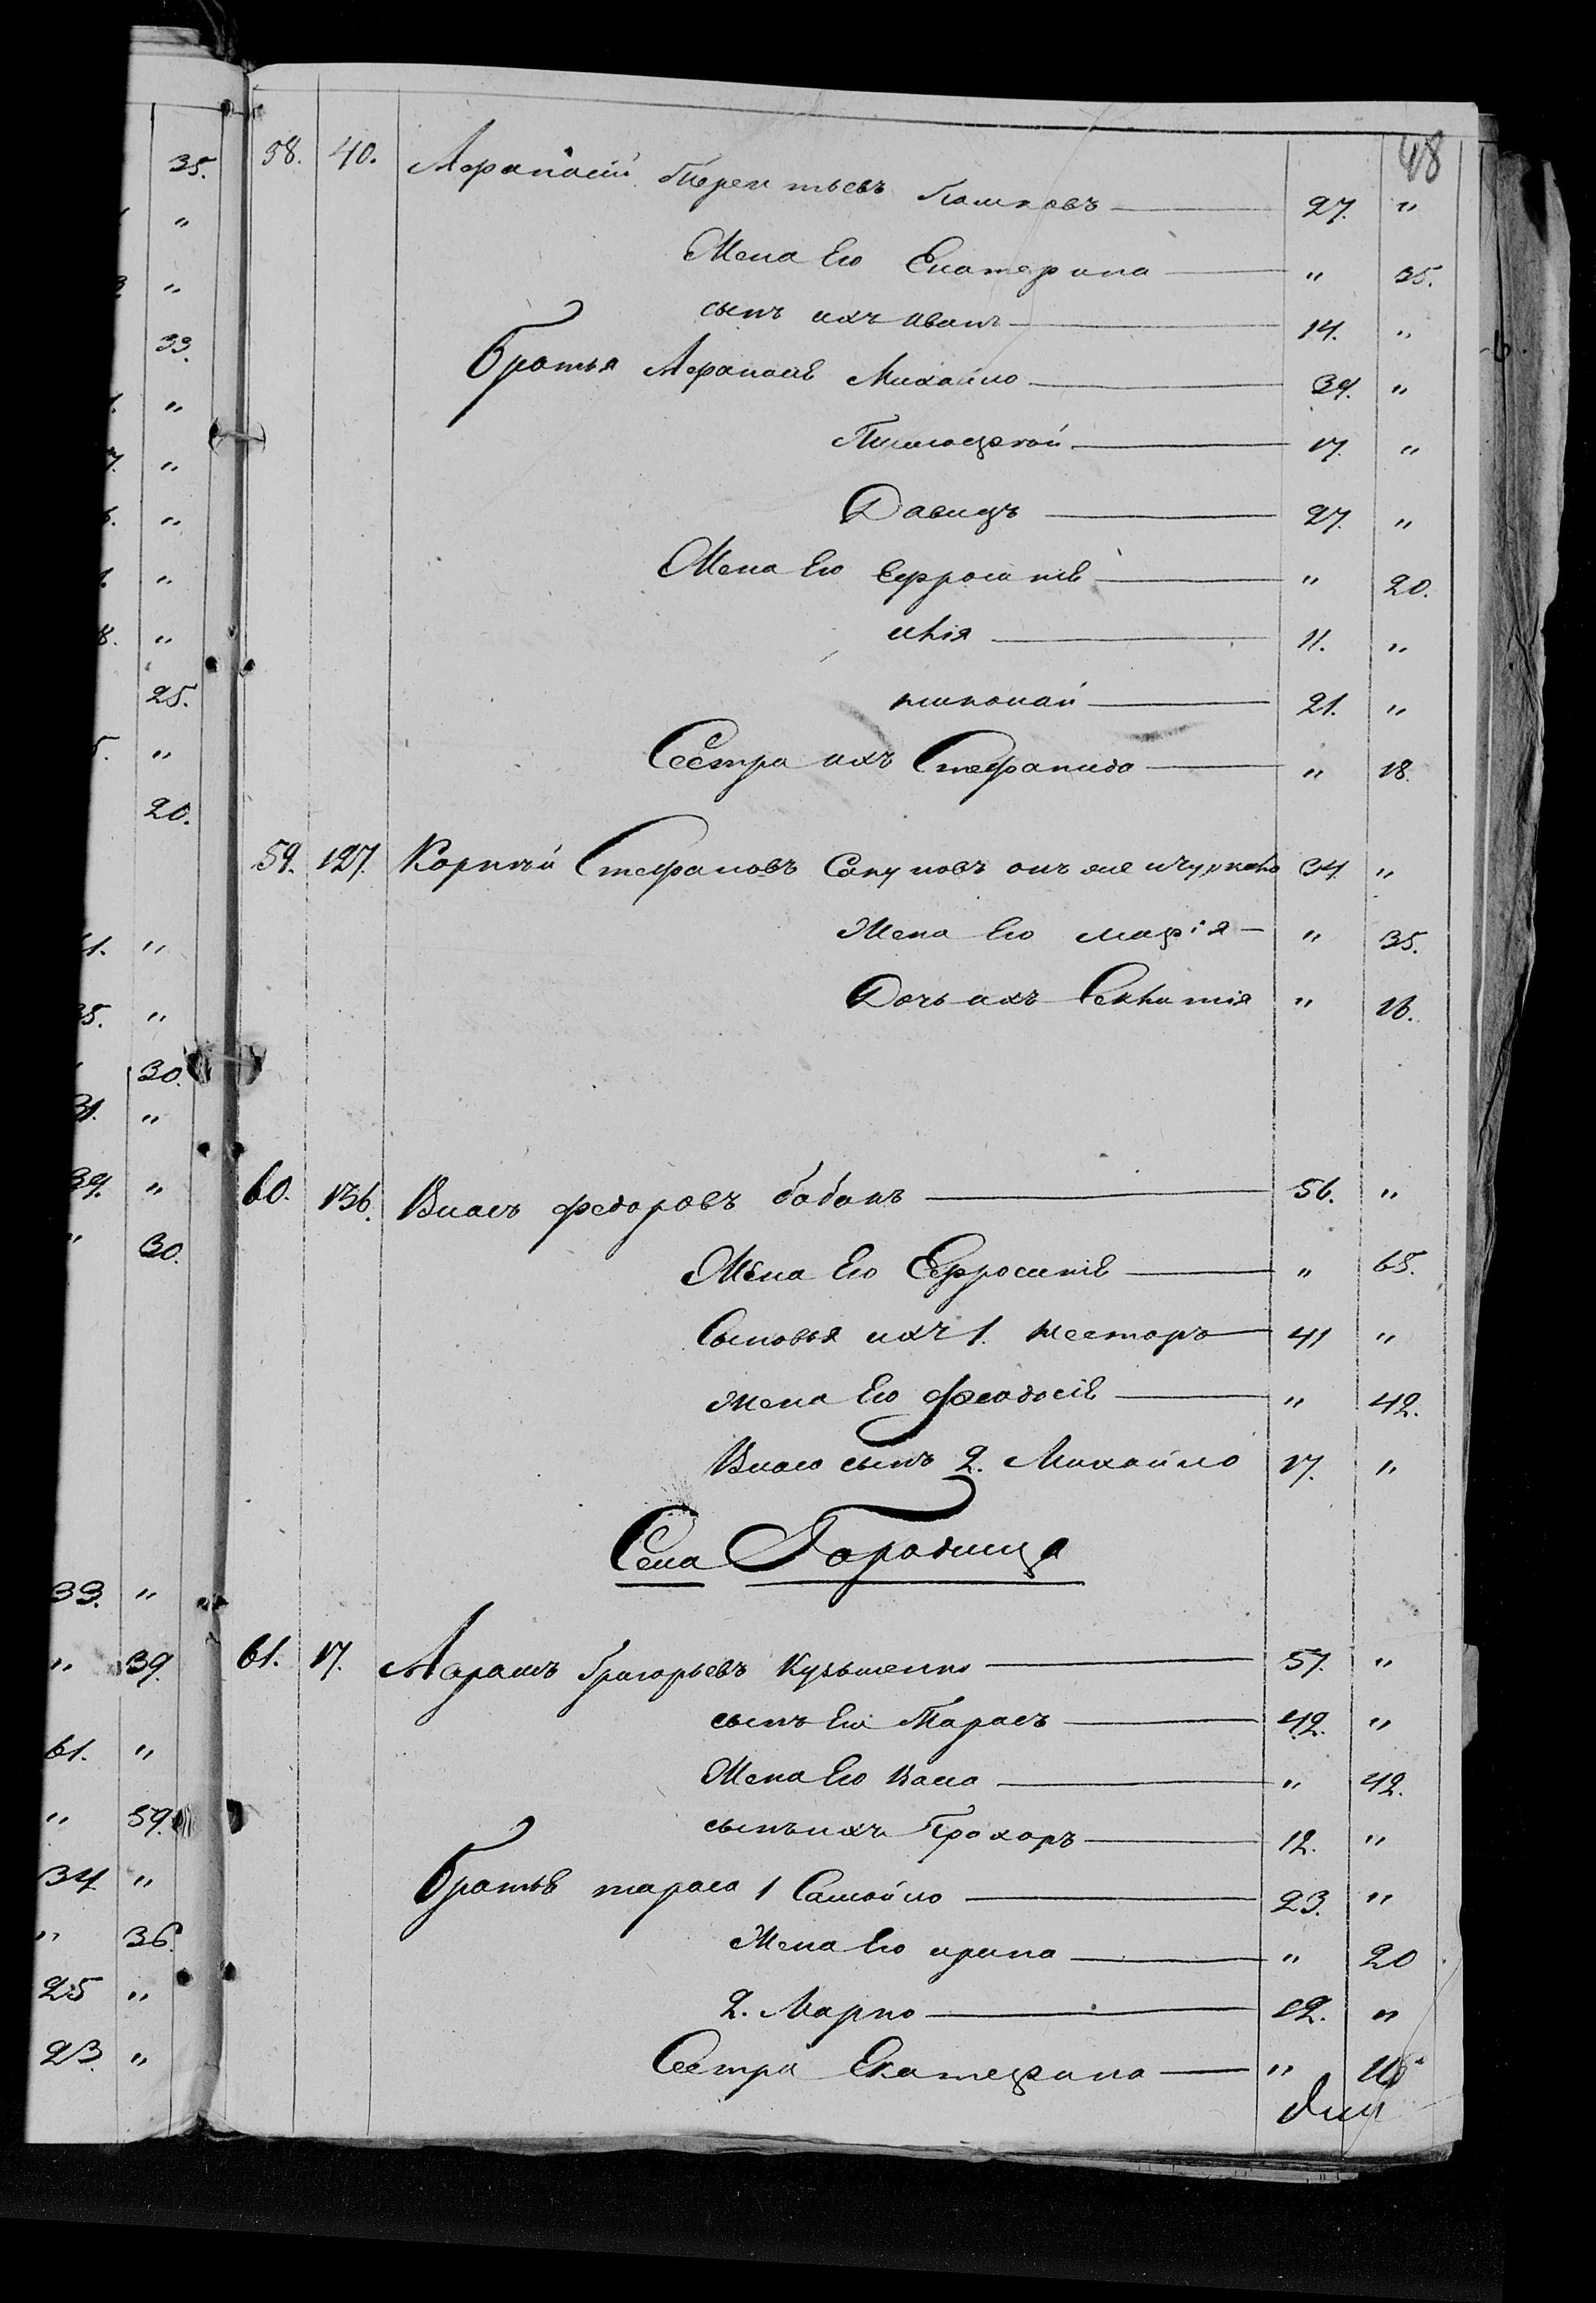 48
58. 40. Афанасій Терентьевъ Пашковъ 27. "
Жена Его Екатерина " 25.
сынъ ихъ иванъ 14. "
братья Афанасія Михайло 34. "
Тимофей 17. "
Давидъ 27. "
Жена Его Ефросинія " 20.
илія 11. "
николай 21. "
Сестра ихъ Стефанида " 18.
59. 127. Корнѣй Стефановъ Сакуновъ онъ же 34. "
Жена Его марія " 35.
Дочь ихъ Евѳимія " 16.
60. 136. Власъ федоровъ бабакъ 56. "
Жена Его Ефросинія " 65.
Сыновья ихъ 1. несторъ 41 "
Жена Его феодосія " 42.
Власа сынъ 2. Михайло 17. "
Села Городища
61. 17. Абрамъ Григорьевъ Кузьменко 57. "
сынъ Его Тарасъ 42. "
Жена Его " 42.
сынъ ихъ Прохоръ 12. "
братья тараса 1 Самойло 23. "
Жена Его ирина " 20
2. Марко 12. "
Сестра Екатерина " 16
35.
"
"
33.
"
"
"
"
"
25.
"
20.
"
"
30.
31. "
39. "
" 30.
33. "
" 39.
61. "
" 59.
34 "
" 36.
25 "
23. "